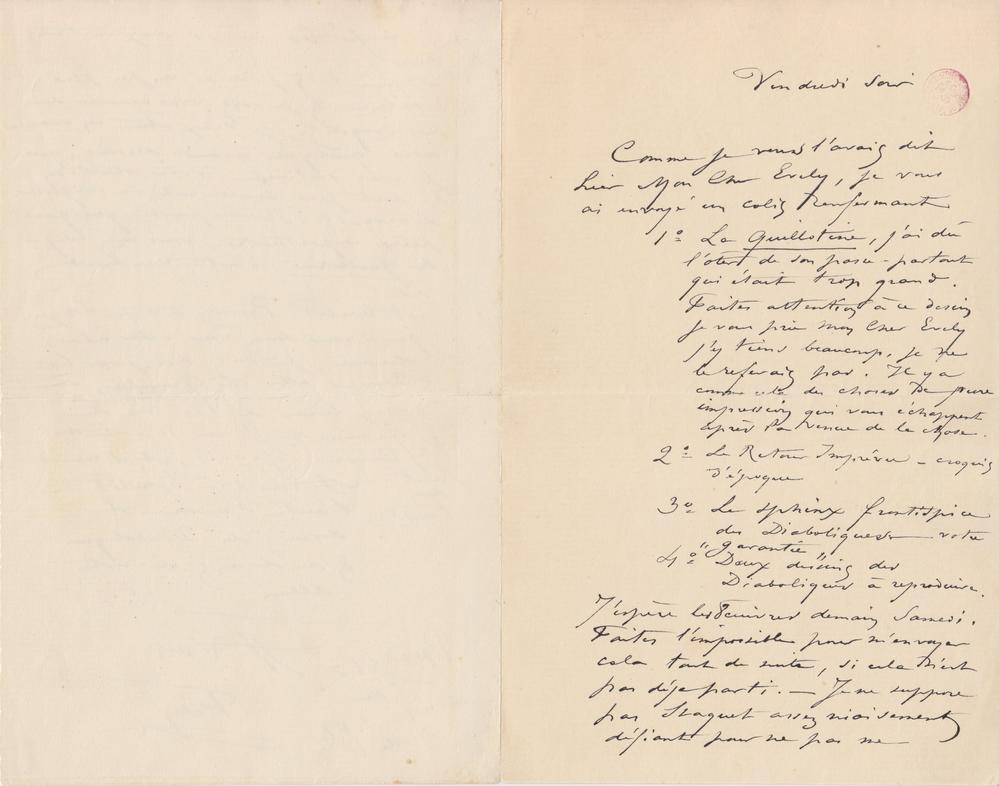 Vendredi soir
Comme je vous l'avais dit
hier Mon Cher Evely, je vous
ai envoyé un colis renfermant
1º La Guillotine, j'ai dû
l'ôter de son passe-partout
qui était trop grand.
Faites attention à ce dessin
je vous prie mon Cher Evely
j'y tiens beaucoup, je ne
le referais pas. Il y a
comme cela des choses de pure
impression qui vous échappent
après la venue de la chose.
2º Le Retour Imprévu – croquis
d'époque
3º Le sphinx frontispice
des Diaboliques votre
"garantie"
4º Deux dessins des
Diaboliques à reproduire.
J'espère les cuivres demain Samedi.
Faites l'impossible pour m'envoyer
cela tout de suite, si cela n'est
pas déja parti. — Je ne suppose
pas Staquet assez niaisement
défiant pour ne pas me